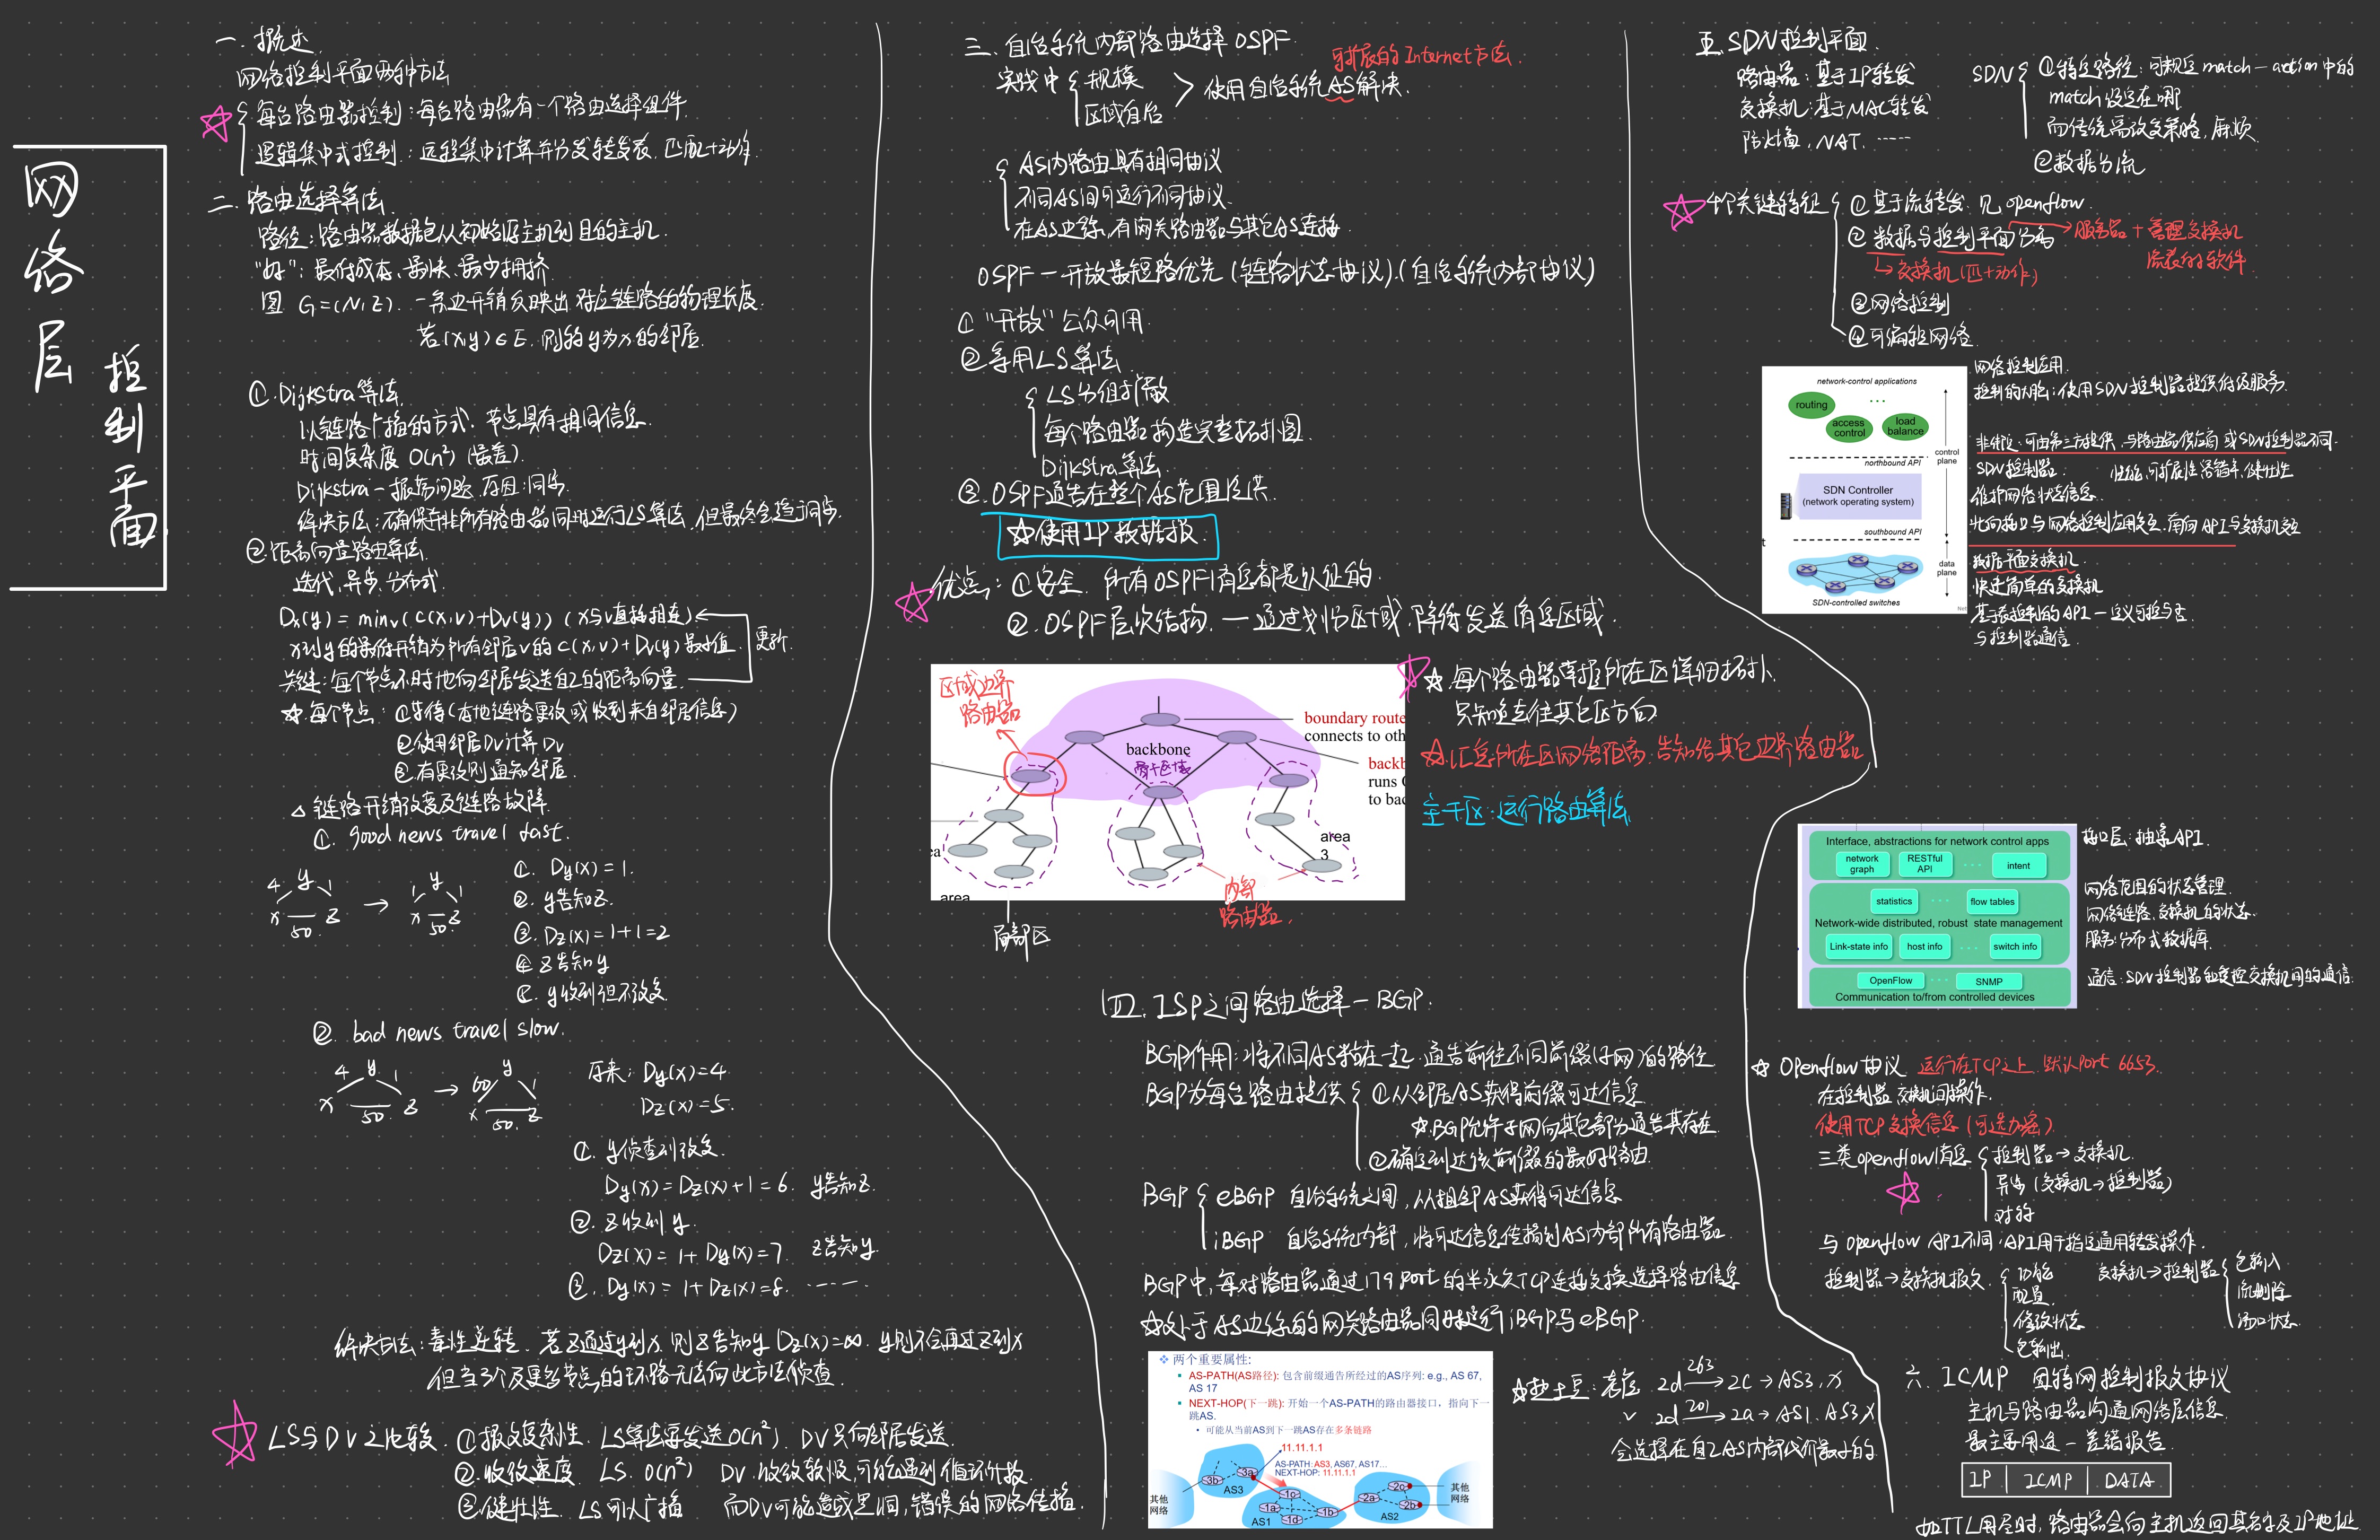 网络层
控制平面
一. 概述
网络控制平面两种方法
每台路由器控制：每台路由器有一个路由选择组件.
逻辑集中式控制：远程集中计算并分发转发表. 匹配+动作.
二. 路由选择算法
路径：路由器数据包从初始源主机到目的主机.
“好”：最低成本、最快、最少拥挤
图 G=(N,E). 一条边开销反映出对应链路的物理长度.
若(x,y)∈E. 则称y为x的邻居.
①.Dijkstra算法
以链路广播的方式. 节点具有相同信息.
时间复杂度 O(n²) (最差).
Dijkstra-振荡问题. 原因:同步.
解决方法：确保并非所有路由器同时运行LS算法. 但最终会趋于同步.
②.距离向量路由算法
迭代、异步、分布式
Dx(y) = minv(C(x,v)+Dv(y)) (x与v直接相连)
x到y的最低开销为所有邻居v的C(x,v)+Dv(y)最小值. 更新
关键：每个节点不时地向邻居发送自己的距离向量.
☆.每个节点：①等待(本地链路更改或收到来自邻居信息)
②使用邻居Dv计算Dv
③.有更改则通知邻居.
△链路开销改变及链路故障.
①. good news travel fast.
4 y 1 x 50 z → 1 y 1 x 50 z
①. Dy(x)=1.
②. y告知z.
③. Dz(x)=1+1=2
④ z告知y
⑤. y收到但不改变.
②. bad news travel slow.
4 y 1 x 50 z → 60 y 1 x 50. z
原来：Dy(x)=4
Dz(x)=5.
①. y侦查到改变.
Dy(x)=Dz(x)+1=6. y告知z.
②. z收到y.
Dz(x)=1+Dy(x)=7. z告知y.
③. Dy(x)=1+Dz(x)=8. ……
解决方法：毒性逆转. 若z通过y到x. 则z告知y Dz(x)=∞. y则不会再过z到x
但当3个及更多节点的环路无法向此方法侦查.
LS与DV之比较. ①报文复杂性. LS算法要发送O(n²). DV只向邻居发送.
②.收敛速度 LS. O(n²) DV.收敛较慢,可能遇到循环计数.
③健壮性. LS可以广播 而DV可能造成黑洞, 错误的网络传播.
三. 自治系统内部路由选择 OSPF.
可扩展的Internet方法.
实践中 规模 区域自治 > 使用自治系统AS解决.
AS内路由具有相同协议
不同AS间可运行不同协议.
在AS边缘,有网关路由器与其它AS连接.
OSPF-开放最短路优先 (链路状态协议).(自治系统内部协议)
①“开放”公众可用.
②等用LS算法.
LS分组扩散
每个路由器构造完整拓扑图.
Dijkstra算法.
③.OSPF通告在整个AS范围泛洪.
☆使用IP数据报.
优点：①安全. 所有OSPF消息都是认证的.
②.OSPF层次结构. —通过划分区域.降低发送消息区域.
区域边界
路由器
boundary route
connects to oth
backbone
骨干区域
backb
runs
to bac
ea
area
area
3
局部区
内部
路由器.
☆.每个路由器掌握所在区详细拓扑.
只知道去往其它区方向
☆.汇总所在区网络距离.告知给其它边界路由器
主干区：运行路由算法
四. ISP之间路由选择-BGP.
BGP作用:将不同AS粘在一起.通告前往不同前缀(子网)的路径.
BGP为每台路由提供 ①从邻居AS获得前缀可达信息
☆.BGP允许子网向其它部分通告其存在.
②确定到达该前缀的最好路由.
BGP eBGP 自治系统之间, 从相邻AS获得可达信息
iBGP 自治系统内部, 将可达信息传播到AS内部所有路由器.
BGP中,每对路由器通过179 port的半永久TCP连接交换选择路由信息
☆处于AS边缘的网关路由器同时运行iBGP与eBGP.
❖ 两个重要属性:
AS-PATH(AS路径): 包含前缀通告所经过的AS序列: e.g., AS 67, AS 17
NEXT-HOP(下一跳): 开始一个AS-PATH的路由器接口，指向下一跳AS.
• 可能从当前AS到下一跳AS存在多条链路
11.11.1.1
AS-PATH: AS3, AS67, AS17...
NEXT-HOP: 11.11.1.1
3b 3a
AS3
其他网络
1c
1a 1b
1d
AS1
2c
2a
2b
AS2
其他网络
☆热土豆：若应 2d 263→ 2c → AS3. X
✓ 2d 201→ 2a → AS1. AS3 X
会选择在自己AS内部代价最小的
五. SDN控制平面.
路由器：基于IP转发
交换机:基于MAC转发
防火墙. NAT. ……
SDN ①特定路径：可规定match-action中的
match设定在哪
而传统需改变策略,麻烦.
②数据分流
4个关键特征 ①基于流转发.见openflow.
②数据与控制平面分离
服务器+管理交换机
流表的软件
↳交换机(匹+动作)
③网络控制
④可编程网络.
network-control applications
routing
access control
load balance
control plane
northbound API
SDN Controller
(network operating system)
southbound API
data plane
SDN-controlled switches
网络控制应用.
控制的大脑:使用SDN控制器提供低级服务.
非绑定:可由第三方提供.与路由器供应商或SDN控制器不同.
SDN控制器. 性能,可扩展性,容错率,健壮性
维护网络状态信息.
北向接口与网络控制应用交互.南向API与交换机交互
数据平面交换机.
快速简单的交换机
基于表控制的API-定义可控与否.
与控制器通信.
Interface, abstractions for network control apps
network graph
RESTful API
intent
statistics
flow tables
Network-wide distributed, robust state management
Link-state info
host info
switch info
OpenFlow
SNMP
Communication to/from controlled devices
接口层：抽象API.
网络范围的状态管理
网络链路、交换机的状态.
服务:分布式数据库.
通信：SDN控制器和受控交换机间的通信.
☆ Openflow协议 运行在TCP之上.默认Port 6653.
在控制器 交换机间操作.
使用TCP交换信息 (可选加密)
三类openflow消息 控制器→交换机.
异步 (交换机→控制器)
对称
与 openflow API不同.API用于指定通用转发操作.
控制器→交换机报文. 功能 配置. 修改状态 包输出.
交换机→控制器 包输入 流删除 端口状态.
六. ICMP 因特网控制报文协议
主机与路由器沟通网络层信息.
最主要用途-差错报告.
IP | ICMP | DATA
如TTL用尽时, 路由器会向主机返回其名字及IP地址